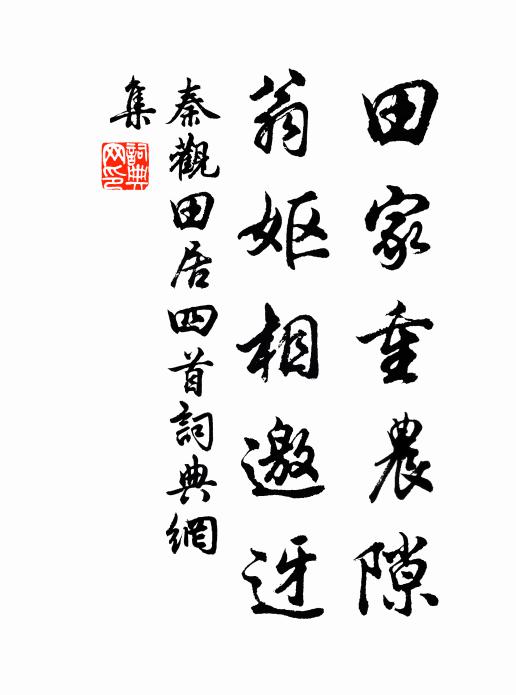 田家重農隙
翁嫗相邀迓
秦觀田居四首詞典網
集
詞典網印